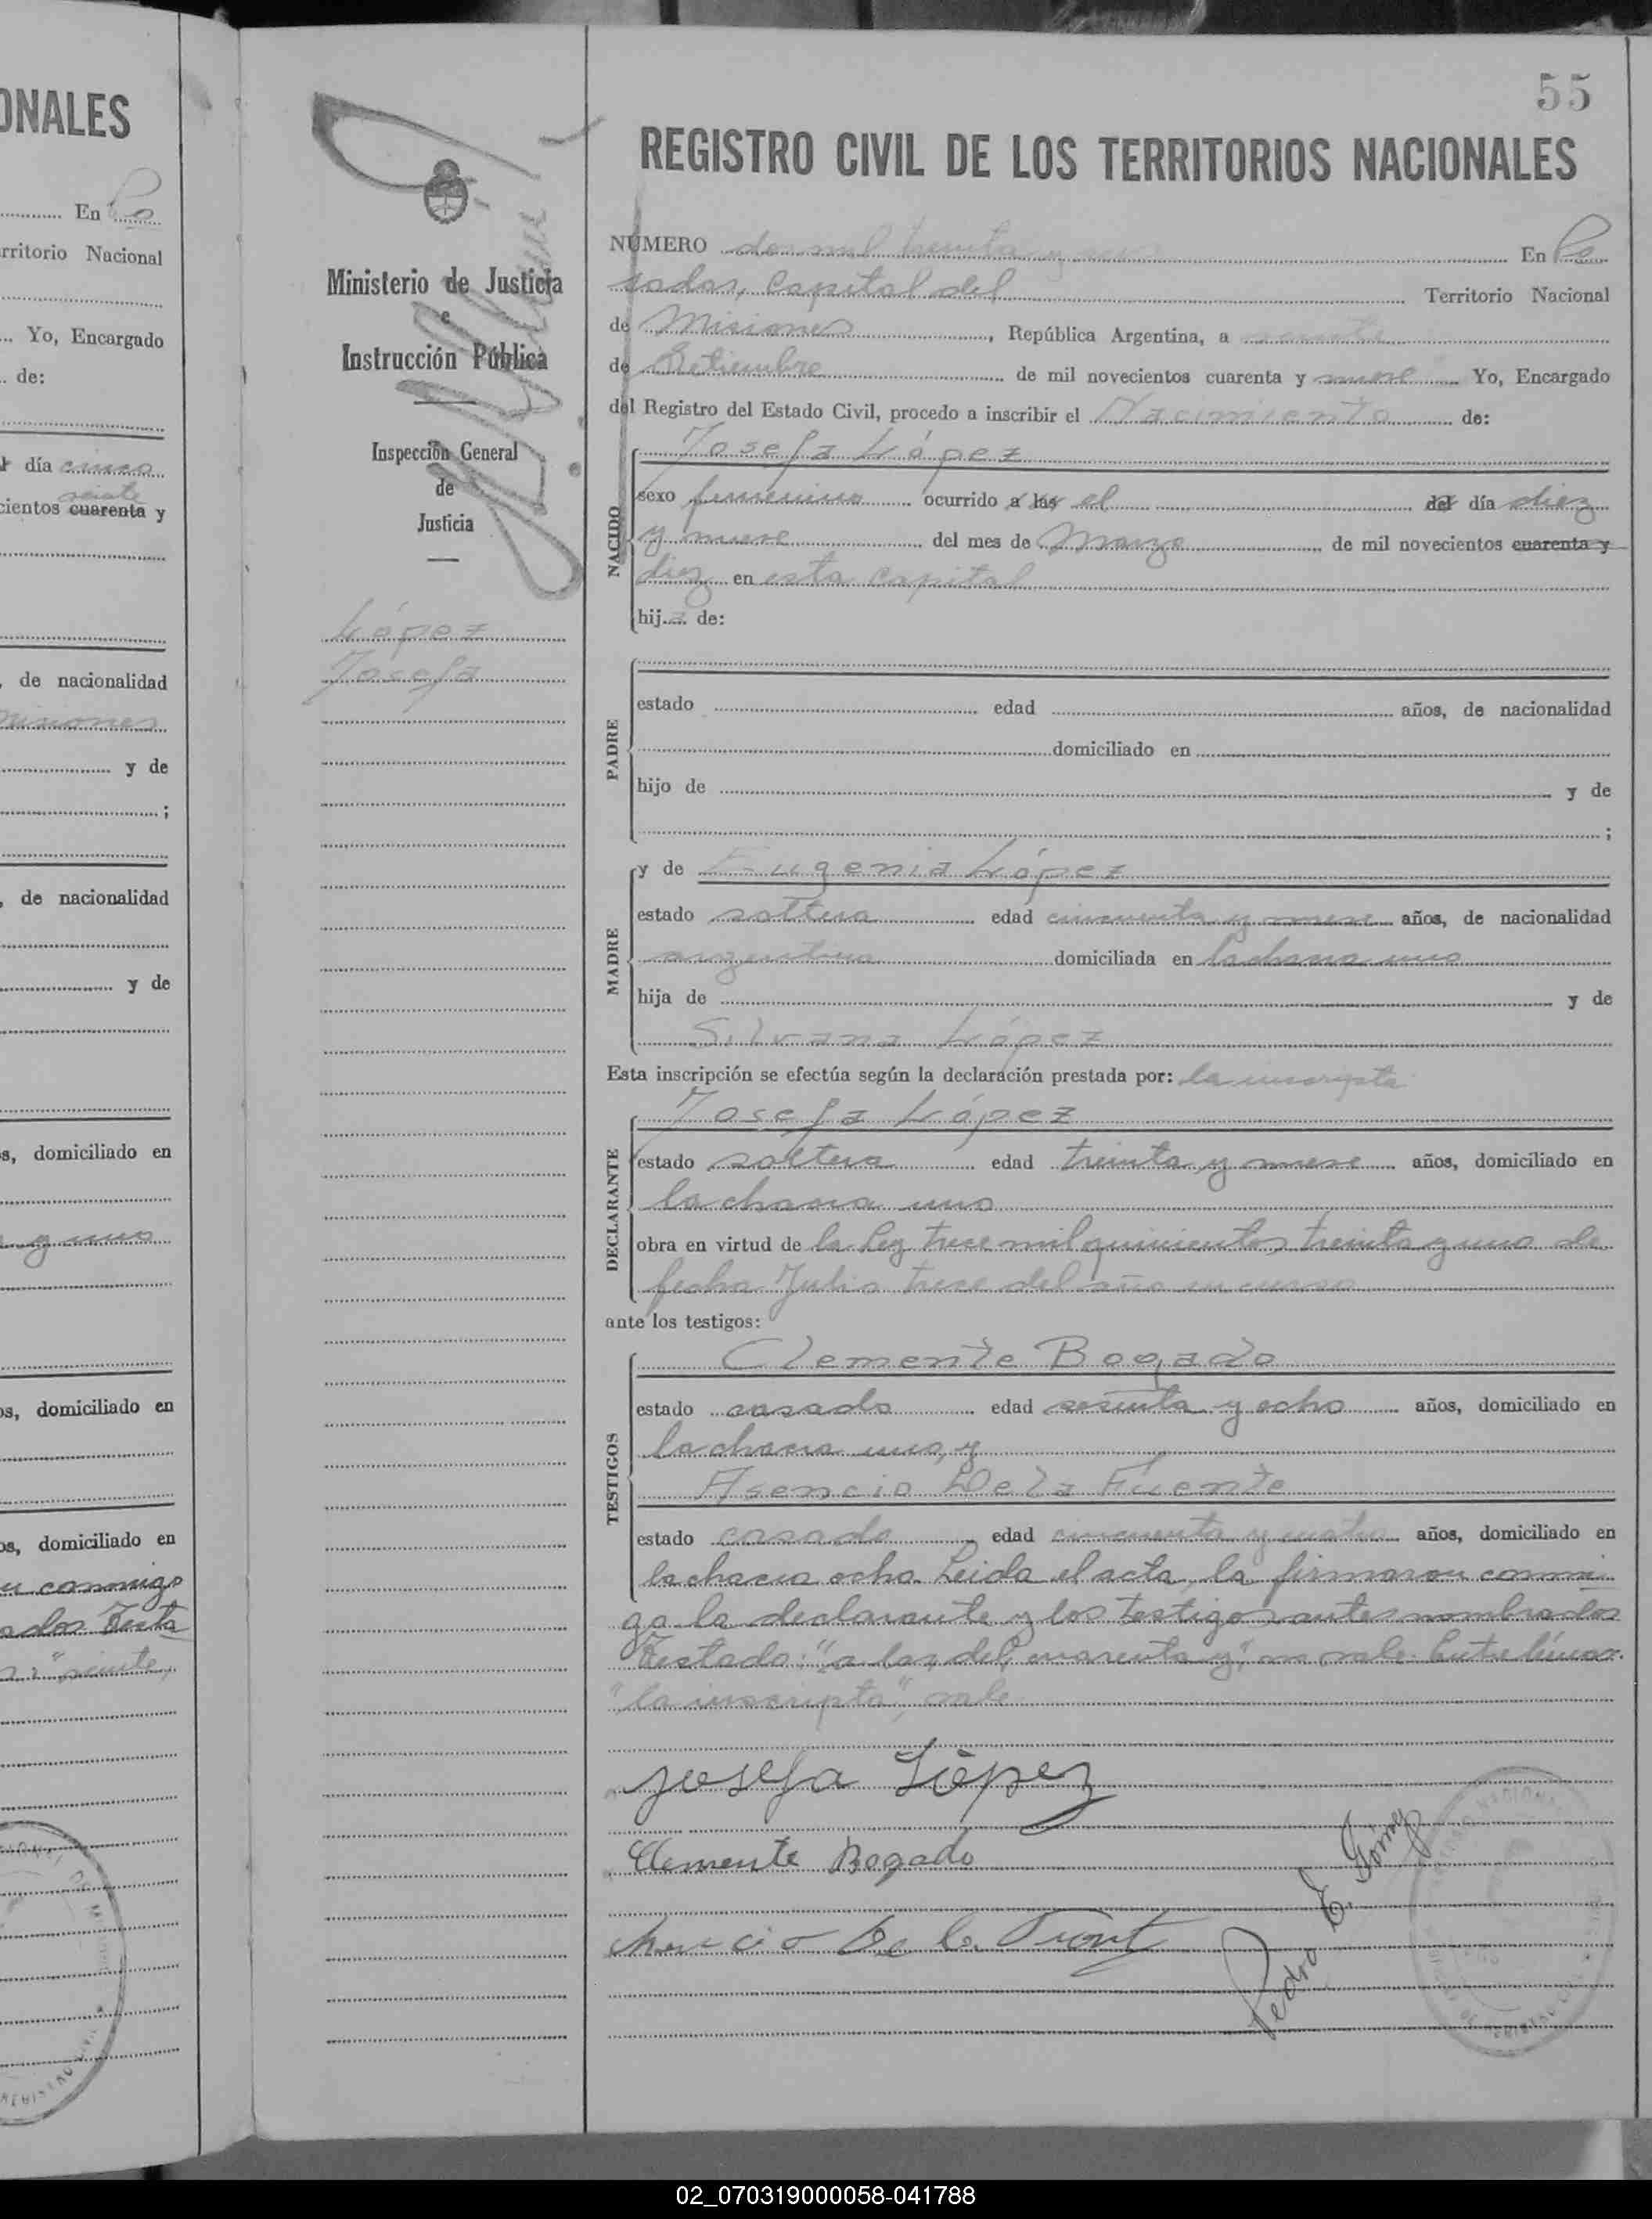 ONALES
En Po
rritorio Nacional
Yo, Encargado
de:
día cinco
siete
cientos cuarenta y
de nacionalidad
Misiones
y de
;
, de nacionalidad
y de
s, domiciliado en
y uno
os, domiciliado en
os, domiciliado en
conmigo
ados Testa
"siete,
Ministerio de Justicia
e
Instrucción Pública
Inspección General
de
Justicia
López
Josefa
55
REGISTRO CIVIL DE LOS TERRITORIOS NACIONALES
NÚMERO dos mil treinta y En Po
sadas, Capital del Territorio Nacional
de Misiones, República Argentina, a
de Setiembre de mil novecientos cuarenta y nueve Yo, Encargado
del Registro del Estado Civil, procedo a inscribir el Nacimiento de:
NACIDO
Josefa López
sexo femenino ocurrido a las el del día diez
y nueve del mes de Marzo de mil novecientos cuarenta y
diez en esta capital
hija de:
PADRE
estado edad años, de nacionalidad
domiciliado en
hijo de y de
;
MADRE
y de Eugenia López
estado soltera edad cincuenta y nueve años, de nacionalidad
argentina domiciliada en la chacra uno
hija de y de
Silvana López
Esta inscripción se efectúa según la declaración prestada por: la inscripta
DECLARANTE
Josefa López
estado soltera edad treinta y nueve años, domiciliado en
la chacra uno
obra en virtud de la Ley trece mil quinientos treinta y uno de
fecha Julio trece del año en curso
ante los testigos:
TESTIGOS
Clemente Bogado
estado casado edad sesenta y ocho años, domiciliado en
la chacra uno, y
Asencio De la Fuente
estado casado, edad cincuenta y cuatro años, domiciliado en
la chacra ocho. Leida el acta, la firmaron conmi
go la declarante y los testigos antes nombrados
Testado: "a las, del, cuarenta y", no vale. Entre líneas:
"la inscripta", vale
Josefa López
Clemente Bogado
De la Fuent
Pedro E. Gómez
02_070319000058-041788